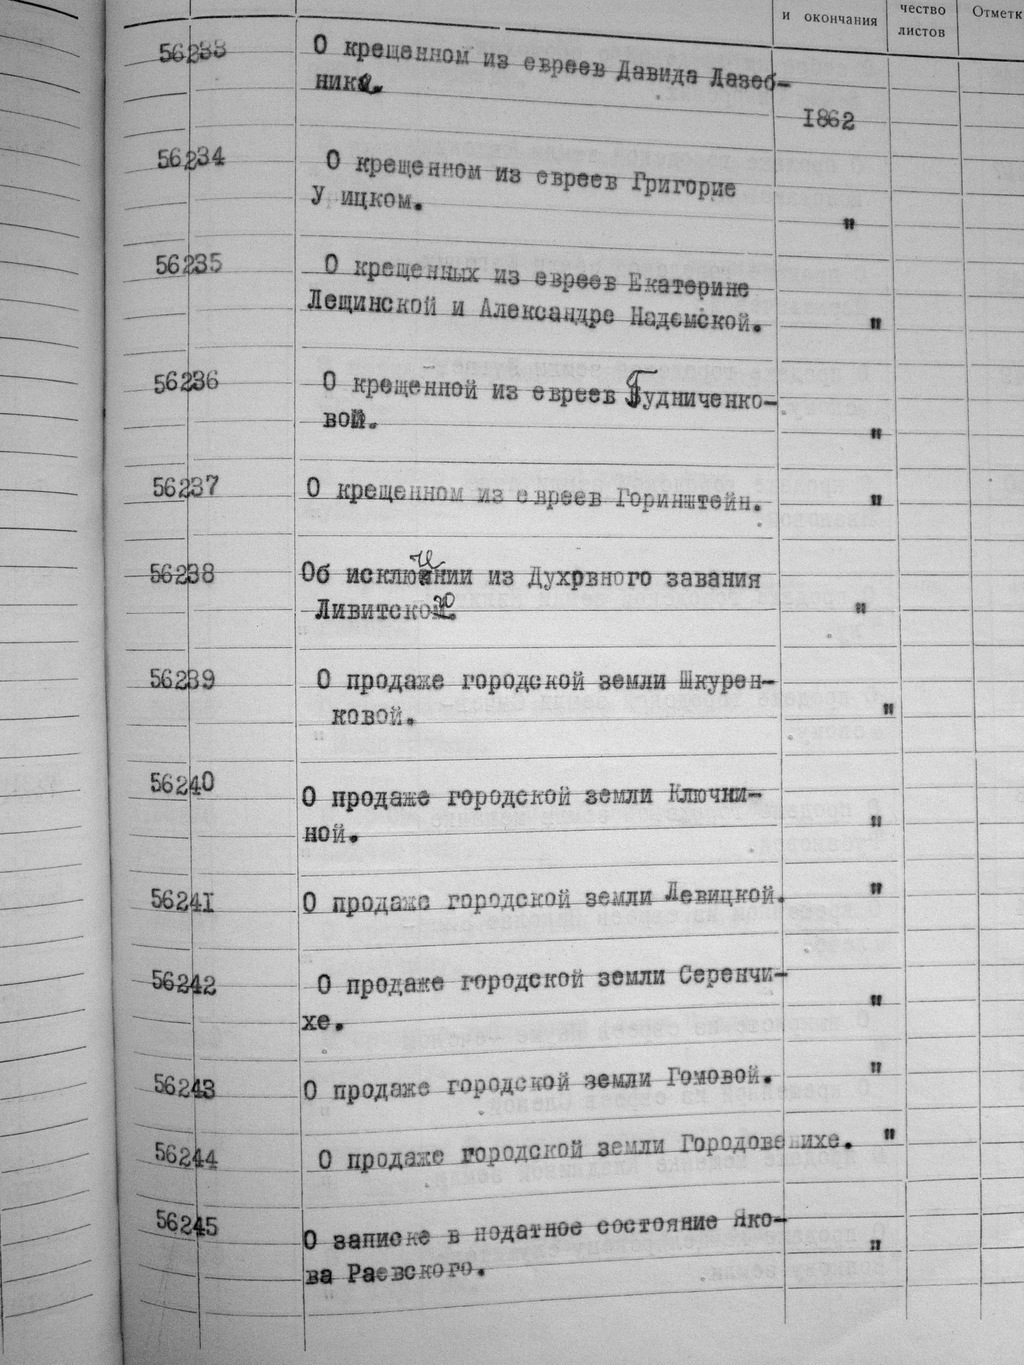 и окончания
чество
листов
Отметк
56233 О крещенном из евреев Давида Лазеб-
ника.
1862
56234 О крещенном из евреев Григорие
У ицком. "
56235 О крещенных из евреев Екатерине
Лещинской и Александре Надемской. "
56236 О крещенной из евреев Будниченко-
вой. "
56237 О крещенном из евреев Горинштейн. "
56238 Об исключении из Духрвного завания
Ливитского. "
56239 О продаже городской земли Шкурен-
ковой. "
56240 О продаже городской земли Ключни-
ной. "
56241 О продаже городской земли Левицкой. "
56242 О продаже городской земли Серенчи-
хе. "
56243 О продаже городской земли Гомовой. "
56244 О продаже городской земли Городовенихе. "
56245 О записке в податное состояние Яко-
ва Раевского. "